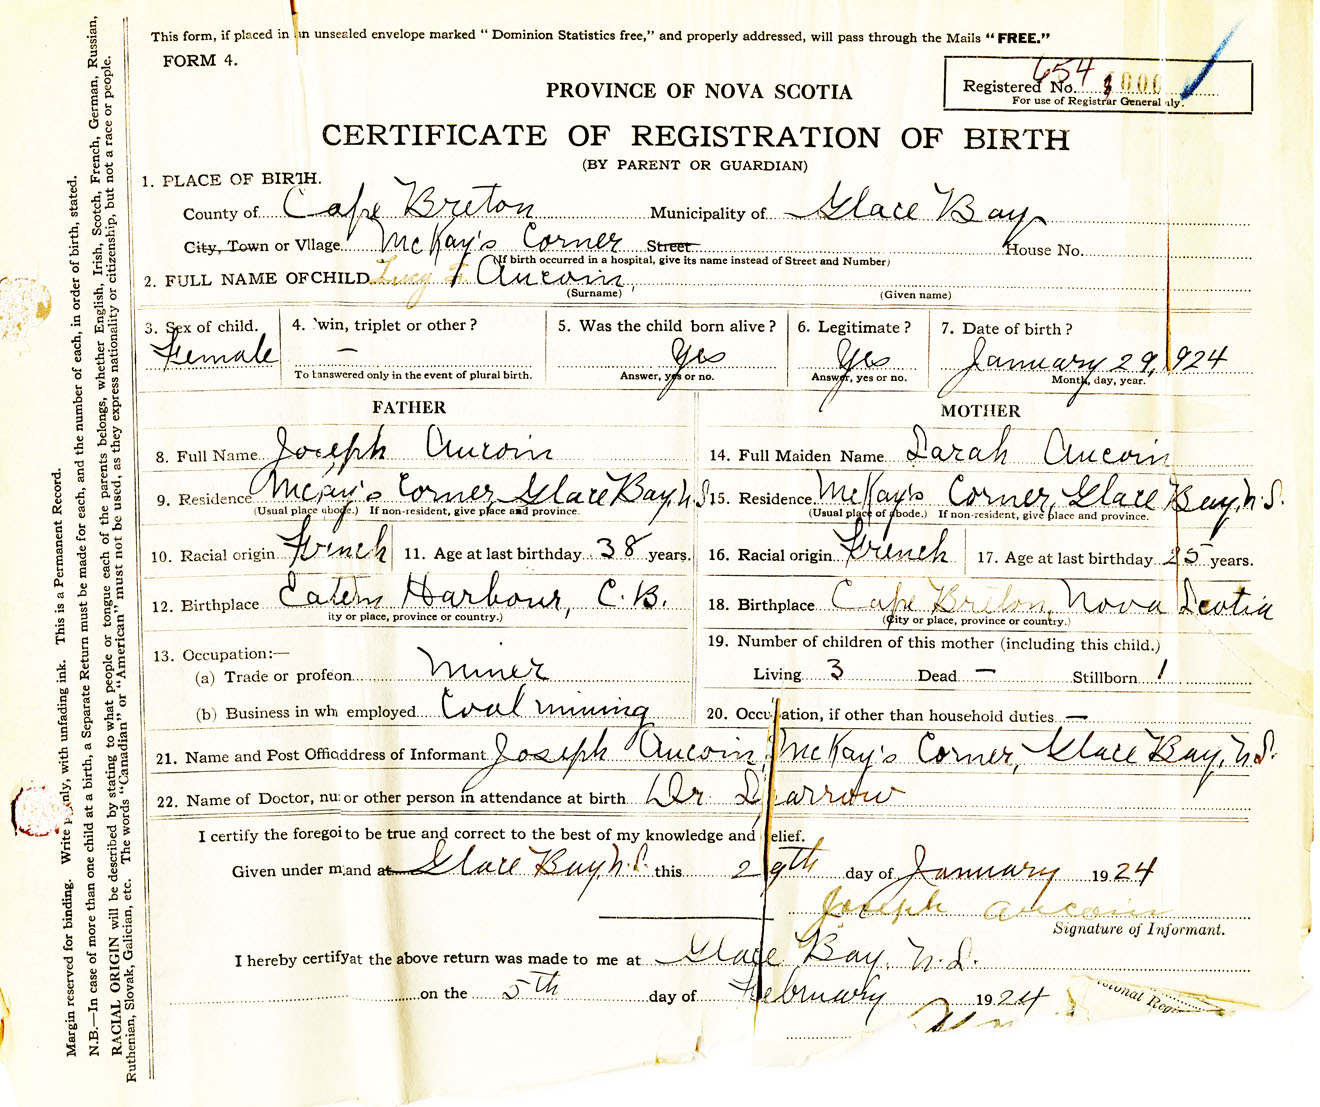 This form, if placed in an unsealed envelope marked "Dominion Statistics free," and properly addressed, will pass through the Mails "FREE."
FORM 4.
654
Registered No. 1000
For use of Registrar General nly.
PROVINCE OF NOVA SCOTIA
CERTIFICATE OF REGISTRATION OF BIRTH
(BY PARENT OR GUARDIAN)
1. PLACE OF BIRTH.
County of Cape Breton Municipality of Glace Bay
City, Town or Vllage McKay's Corner Street House No.
(If birth occurred in a hospital, give its name instead of Street and Number)
2. FULL NAME OF CHILD Lucy Aucoin,
(Surname) (Given name)
3. Sex of child. 4. win, triplet or other? 5. Was the child born alive? 6. Legitimate? 7. Date of birth?
Female — Yes Yes January 29, 1924
To answered only in the event of plural birth. Answer, yes or no. Answer, yes or no. Month, day, year.
FATHER MOTHER
8. Full Name Joseph Aucoin 14. Full Maiden Name Sarah Aucoin
9. Residence McKay's Corner Glace Bay, N.S. 15. Residence McKay's Corner, Glace Bay, N.S.
(Usual place abode.) If non-resident, give place and province. (Usual place of abode.) If non-resident, give place and province.
10. Racial origin French 11. Age at last birthday 38 years. 16. Racial origin French 17. Age at last birthday 25 years.
12. Birthplace Harbour, C.B. 18. Birthplace Cape Breton, Nova Scotia
ity or place, province or country.) (City or place, province or country.)
13. Occupation:— 19. Number of children of this mother (including this child.)
(a) Trade or profeon Miner Living 3 Dead — Stillborn 1
(b) Business in wh employed Coal mining 20. Occupation, if other than household duties —
21. Name and Post Offic address of Informant Joseph Aucoin, McKay's Corner, Glace Bay, N.S.
22. Name of Doctor, nu or other person in attendance at birth Dr.
I certify the foregoi to be true and correct to the best of my knowledge and elief.
Given under m and at Glace Bay, N.S. this 29th day of January 1924
Joseph Aucoin
Signature of Informant.
I hereby certify at the above return was made to me at Glace Bay, N.S.
on the 5th day of February 1924
Margin reserved for binding. Write nly, with unfading ink. This is a Permanent Record.
N.B.—In case of more than one child at a birth, a Separate Return must be made for each, and the number of each, in order of birth, stated.
RACIAL ORIGIN will be described by stating to what people or tongue each of the parents belongs, whether English, Irish, Scotch, French, German, Russian,
Ruthenian, Slovak, Galician, etc. The words "Canadian" or "American" must not be used, as they express nationality or citizenship, but not a race or people.